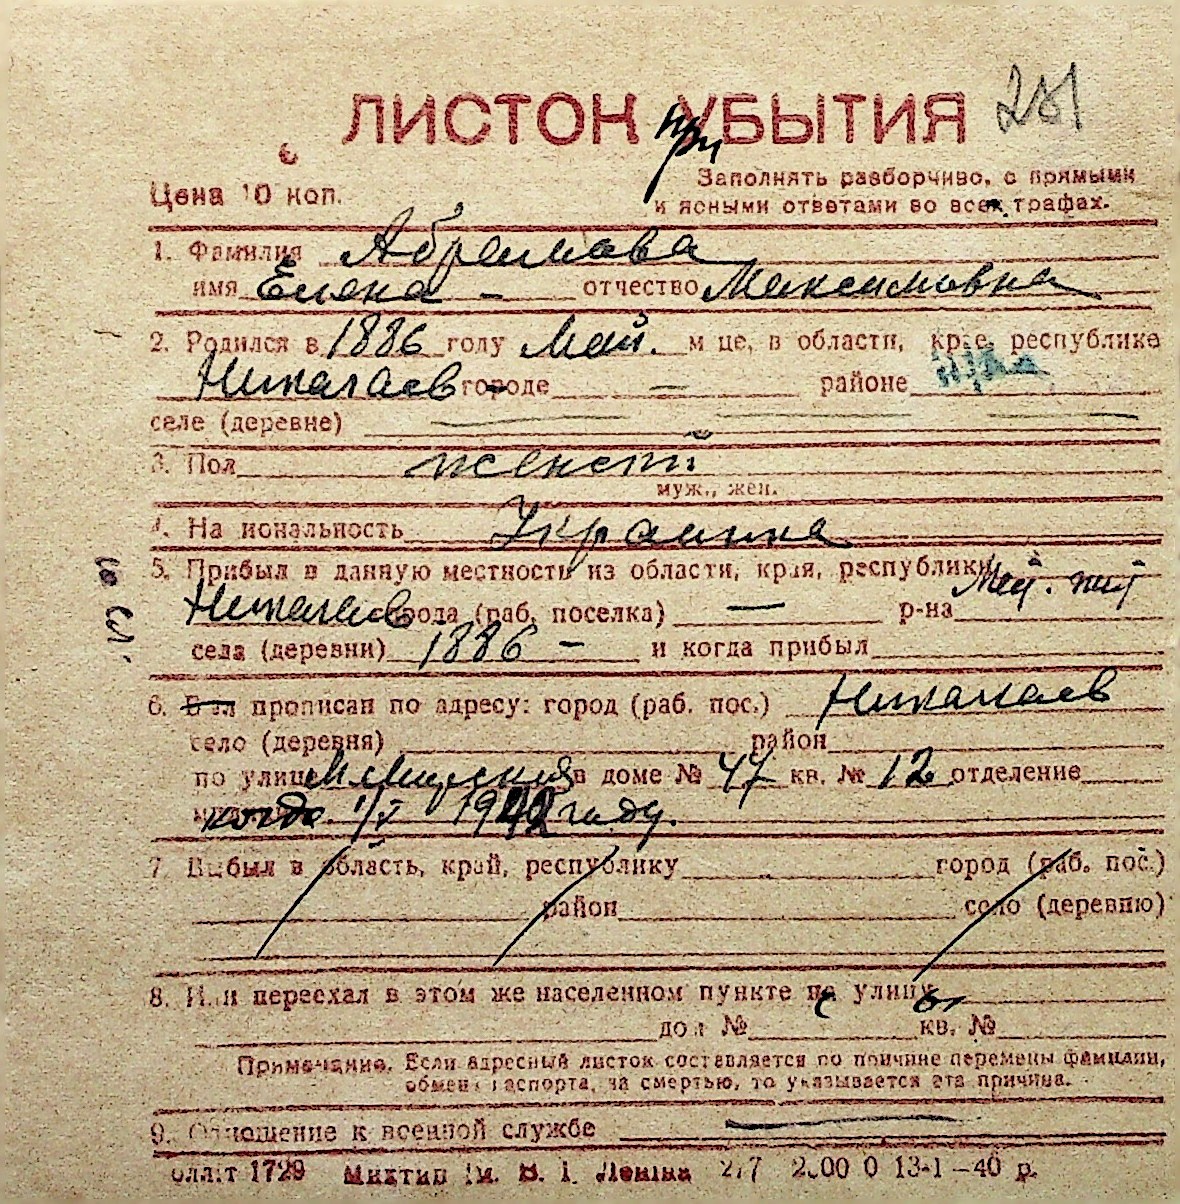 ЛИСТОК УБЫТИЯ 281
при
Цена 10 коп.
Заполнять разборчиво, с прямыми
и ясными ответами во всех графах.
1. Фамилия Абрамова
имя Елена – отчество Максимовна
2. Родился в 1886 году Май. м-це, в области, крае, республике
Николаев – городе – районе
селе (деревне)
3. Пол женский
муж., жен.
4. Национальность Украинка
5. Прибыл в данную местность из области, края, республики
Николаев города (раб. поселка) – р-на
села (деревни) 1886 – и когда прибыл
6. Был прописан по адресу: город (раб. пос.) Николаев
село (деревня) район
по улице в доме № 47 кв. № 12 отделение
когда 1/V 1942 году.
7. Выбыл в область, край, республику город (раб. пос.)
район село (деревню)
8. Или переехал в этом же населенном пункте по улицы
с
дом № кв. №
Примечание. Если адресный листок составляется по причине перемены фамилии,
обмена паспорта, за смертью, то указывается эта причина.
9. Отношение к военной службе
1729 Миктип ім. В. І. Леніна 13-1–40 р.